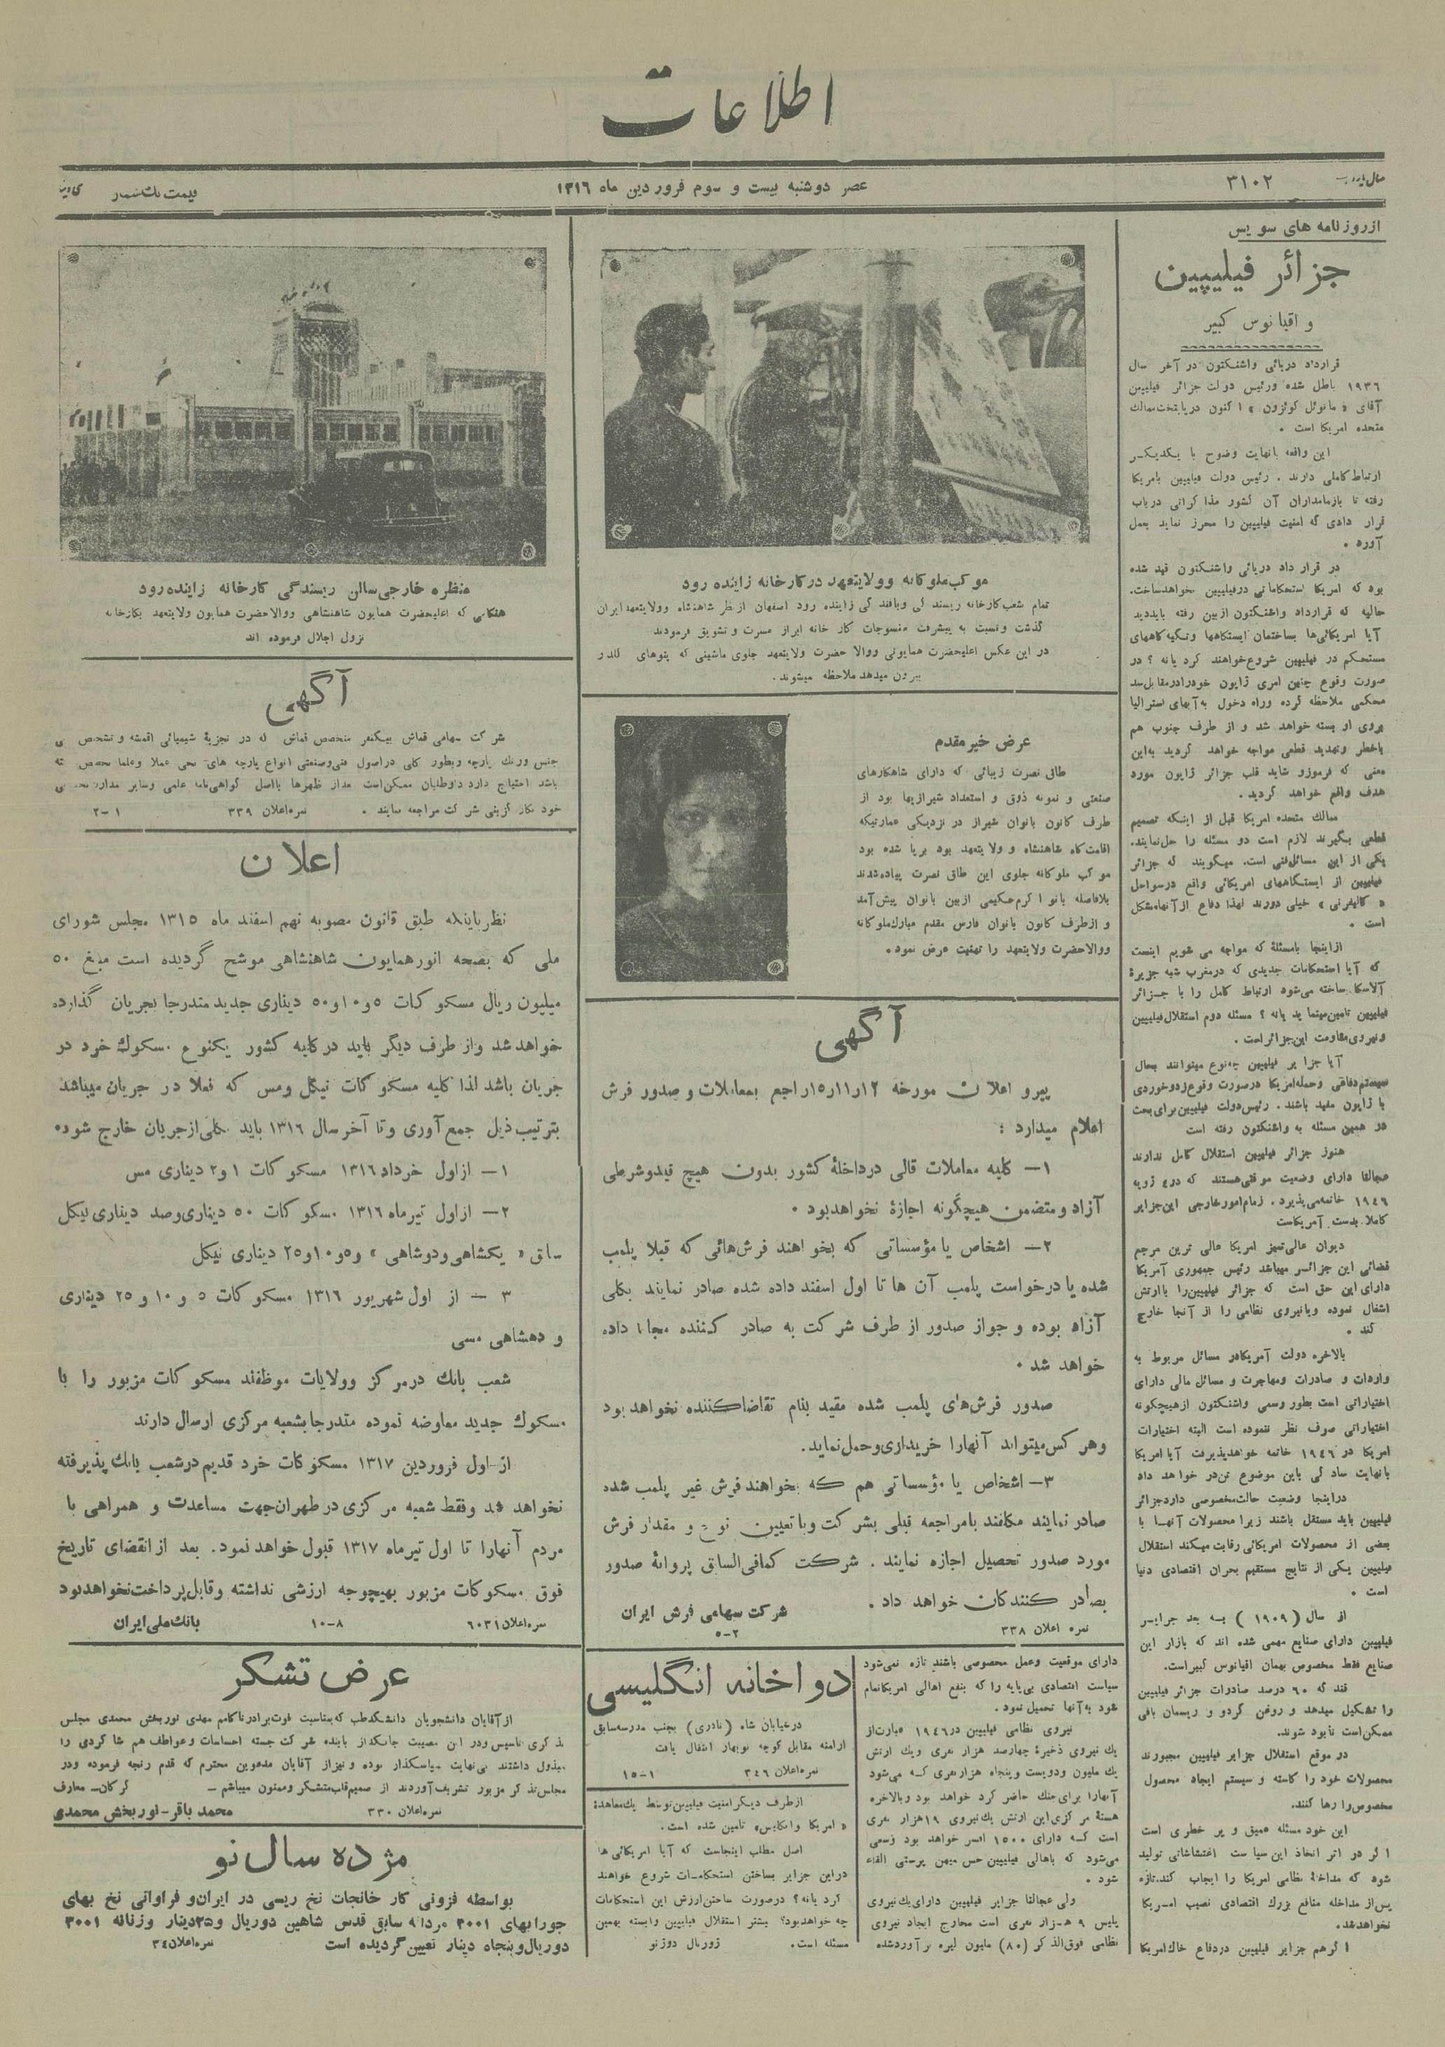 اطلاعات
۳۱۰۲
عصر دوشنبه بیست و سوم فروردین ماه ۱۳۱۶
قیمت تک شماره
از روزنامه های سویس
جزائر فیلیپین
و اقیانوس کبیر
قرارداد دریائی واشنگتون در آخر سال
۱۹۳۶ باطل شده و رئیس دولت جزائر فیلیپین
آقای « مانوئل کوئزون » اکنون در پایتخت ممالک
متحده امریکا است .
این واقعه بانهایت وضوح با یکدیگر
ارتباط کاملی دارند . رئیس دولت فیلیپین بامریکا
رفته تا بازمامداران آن کشور مذاکراتی در باب
قرار دادی که امنیت فیلیپین را محرز نماید بعمل
آورد .
در قرار داد دریائی واشنگتون قید شده
بود که امریکا استحکاماتی در فیلیپین نخواهد ساخت.
حالیه که قرارداد واشنگتون از بین رفته باید دید
آیا امریکائی‌ها بساختمان ایستگاهها و تکیه گاههای
مستحکم در فیلیپین شروع خواهند کرد یا نه ؟ در
صورت وقوع چنین امری ژاپون خود را در مقابل سد
محکمی ملاحظه کرده و راه دخول به آبهای استرالیا
بروی او بسته خواهد شد و از طرف جنوب هم
باخطر و تهدید قطعی مواجه خواهد گردید به این
معنی که فرموزو شاید قلب جزائر ژاپون مورد
هدف واقع خواهد گردید .
ممالک متحده امریکا قبل از اینکه تصمیم
قطعی بگیرند لازم است دو مسئله را حل نمایند.
یکی از این مسائل فنی است. میگویند که جزائر
فیلیپین از ایستگاههای امریکائی واقع در سواحل
« کالیفرنی » خیلی دورند لهذا دفاع از آنها مشکل
است .
از اینجا بامسئله که مواجه می شویم اینست
که آیا استحکامات جدیدی که در مغرب شبه جزیرهٔ
آلاسکا ساخته می‌شود ارتباط کامل را با جزائر
فیلیپین تامین مینماید یا نه ؟ مسئله دوم استقلال فیلیپین
و نیروی مقاومت این جزائر است .
آیا جزایر فیلیپین چه نوع میتوانند بحال
سیستم دفاعی و حمله امریکا در صورت وقوع زد و خوردی
با ژاپون مفید باشند . رئیس دولت فیلیپین برای بحث
در همین مسئله به واشنگتون رفته است
هنوز جزائر فیلیپین استقلال کامل ندارند
عجالتا دارای وضعیت موقتی هستند که در ٤ ژویه
۱۹٤٦ خاتمه می پذیرد . زمام امور خارجی این جزایر
کاملا بدست آمریکاست
دیوان عالی تمیز امریکا عالی ترین مرجع
قضائی این جزائر میباشد رئیس جمهوری آمریکا
دارای این حق است که جزائر فیلیپین را با ارتش
اشغال نموده و یا نیروی نظامی را از آنجا خارج
کند .
بالاخره دولت آمریکا در مسائل مربوط به
واردات و صادرات و مهاجرت و مسائل مالی دارای
اختیاراتی است بطور رسمی واشنگتون از هیچگونه
اختیاراتی صرف نظر ننموده است البته اختیارات
امریکا در ۱۹٤٦ خاتمه خواهد پذیرفت آیا امریکا
بانهایت سادگی باین موضوع تن در خواهد داد
در اینجا وضعیت حالت مخصوصی دارد جزائر
فیلیپین باید مستقل باشند زیرا محصولات آنها با
بعضی از محصولات امریکائی رقابت میکند استقلال
فیلیپین یکی از نتایج مستقیم بحران اقتصادی دنیا
است .
از سال ( ۱۹۰۹ ) به بعد جزایر
فیلیپین دارای صنایع مهمی شده اند که بازار این
صنایع فقط مخصوص بهمان اقیانوس کبیر است.
قند که ۶۰ درصد صادرات جزائر فیلیپین
را تشکیل میدهد و روغن گردو و ریسمان بافی
ممکن است نابود شوند.
در موقع استقلال جزایر فیلیپین مجبورند
محصولات خود را کاسته و سیستم ایجاد محصول
مخصوص را رها کنند.
این خود مسئله عمیق و پر خطری است
اگر در اثر اتخاذ این سیاست اغتشاشاتی تولید
شود که مداخلهٔ نظامی امریکا را ایجاب کند. تازه
پس از مداخله منافع بزرگ اقتصادی نصیب امریکا
نخواهد شد.
اگر هم جزایر فیلیپین در دفاع خاک امریکا
موکب ملوکانه و والایتعهد در کارخانه زاینده رود
تمام شعب کارخانه ریسندگی و بافندگی زاینده رود اصفهان از نظر شاهنشاه و ولایتعهد ایران
گذشت و نسبت به پیشرفت منسوجات کار خانه ابراز مسرت و تشویق فرمودند
در این عکس اعلیحضرت همایونی و والا حضرت ولایتعهد جلوی ماشینی که پتوهای گلدار
بیرون میدهد ملاحظه میشوند .
عرض خیر مقدم
طاق نصرت زیبائی که دارای شاهکارهای
صنعتی و نمونه ذوق و استعداد شیرازیها بود از
طرف کانون بانوان شیراز در نزدیکی عمارتیکه
اقامتگاه شاهنشاه و ولایتعهد بود برپا شده بود
موکب ملوکانه جلوی این طاق نصرت پیاده شدند
بلافاصله بانو اکرم حکیمی از بین بانوان پیش آمد
و از طرف کانون بانوان فارس مقدم مبارک ملوکانه
و والاحضرت ولایتعهد را تهنیت عرض نمود .
آگهی
پیرو اعلان مورخه ۱۵ر۱۱ر۱۲ راجع بمعاملات و صدور فرش
اعلام میدارد :
۱– کلیه معاملات قالی در داخلهٔ کشور بدون هیچ قید و شرطی
آزاد و متضمن هیچگونه اجازه نخواهد بود .
۲– اشخاص یا مؤسساتی که بخواهند فرش‌هائی که قبلا پلمب
شده یا درخواست پلمب آن ها تا اول اسفند داده شده صادر نمایند بکلی
آزاد بوده و جواز صدور از طرف شرکت به صادر کننده مجانا داده
خواهد شد .
صدور فرش‌های پلمب شده مقید بنام تقاضا کننده نخواهد بود
و هر کس میتواند آنها را خریداری و حمل نماید.
۳– اشخاص یا مؤسساتی هم که بخواهند فرش غیر پلمب شده
صادر نمایند مکلفند با مراجعه قبلی بشرکت و با تعیین نوع و مقدار فرش
مورد صدور تحصیل اجازه نمایند . شرکت کمافی السابق پروانهٔ صدور
بصادر کنندگان خواهد داد .
شرکت سهامی فرش ایران
نمره اعلان ۳۳۸
۵-۲
دارای موقعیت و عمل مخصوصی باشند تازه نمی‌شود
سیاست اقتصادی بی‌پایه را که بنفع اهالی امریکا تمام
شود به آنها تحمیل نمود .
نیروی نظامی فیلیپین در ۱۹٤٦ عبارت از
یک نیروی ذخیرهٔ چهارصد هزار نفری و یک ارتش
یک ملیون و دویست و پنجاه هزار نفری که می‌شود
آنها را برای جنگ حاضر کرد خواهد بود و بالاخره
هستهٔ مرکزی این ارتش یک نیروی ۱۹ هزار نفری
است که دارای ۱۵۰۰ افسر خواهد بود و سعی
می‌شود که باهالی فیلیپین حس میهن پرستی القاء
شود .
ولی عجالتا جزایر فیلیپین دارای یک نیروی
پلیس ۹ هزار نفری است مخارج ایجاد نیروی
نظامی فوق الذکر (۸۰) ملیون لیره برآورد شده
دواخانه انگلیسی
در خیابان شاه (نادری) بجنب مدرسه سابق
ارامنه مقابل کوچه نوبهار انتقال یافت
نمره اعلان ۳٤٦
۱۵-۱
از طرف دیگر امنیت فیلیپین توسط یک معاهده
« امریکا و انگلیس » تامین شده است.
اصل مطلب اینجاست که آیا امریکائی ها
در این جزایر بساختن استحکامات شروع خواهند
کرد یا نه ؟ در صورت ساختن ارزش این استحکامات
چه خواهد بود؟ بیشتر استقلال فیلیپین وابسته بهمین
مسئله است. ژورنال دوژنو
منظره خارجی سالن ریسندگی کارخانه زاینده رود
هنگامی که اعلیحضرت همایون شاهنشاهی و والاحضرت همایون ولایتعهد بکارخانه
نزول اجلال فرموده اند
آگهی
شرکت سهامی قماش بیکنفر متخصص قماش که در تجزیهٔ شیمیائی اقمشه و تشخیص
جنس و رنگ پارچه و بطور کلی در اصول فنی و صنعتی انواع پارچه های نخی عملا و علما تخصص
باشد احتیاج دارد داوطلبان ممکن است بعد از ظهرها با اصل گواهی‌نامه علمی و سایر مدارک
خود بکارگزینی شرکت مراجعه نمایند . نمره اعلان ۳۳۹ ۲-۱
اعلان
نظر باینکه طبق قانون مصوبه نهم اسفند ماه ۱۳۱۵ مجلس شورای
ملی که بصحه انور همایون شاهنشاهی موشح گردیده است مبلغ ۵۰
میلیون ریال مسکوکات ۵ و ۱۰ و ۵۰ دیناری جدید متدرجا بجریان گذارده
خواهد شد و از طرف دیگر باید در کلیه کشور یکنوع مسکوک خرد در
جریان باشد لذا کلیه مسکوکات نیکل و مس که فعلا در جریان میباشد
بترتیب ذیل جمع آوری و تا آخر سال ۱۳۱۶ باید بکلی از جریان خارج شود.
۱– از اول خرداد ۱۳۱۶ مسکوکات ۱ و ۲ دیناری مس
۲– از اول تیر ماه ۱۳۱۶ مسکوکات ۵۰ دیناری و صد دیناری نیکل
سابق « یکشاهی و دوشاهی » و ۵ و ۱۰ و ۲۵ دیناری نیکل
۳ – از اول شهریور ۱۳۱۶ مسکوکات ۵ و ۱۰ و ۲۵ دیناری
و دهشاهی مسی
شعب بانک در مرکز و ولایات موظفند مسکوکات مزبور را با
مسکوک جدید معاوضه نموده متدرجا بشعبه مرکزی ارسال دارند
از اول فروردین ۱۳۱۷ مسکوکات خرد قدیم در شعب بانک پذیرفته
نخواهد شد و فقط شعبه مرکزی در طهران جهت مساعدت و همراهی با
مردم آنها را تا اول تیر ماه ۱۳۱۷ قبول خواهد نمود . بعد از انقضای تاریخ
فوق مسکوکات مزبور بهیچوجه ارزشی نداشته و قابل پرداخت نخواهد بود
نمره اعلان ۶۰۳۱ ۱۰-۸ بانک ملی ایران
عرض تشکر
از آقایان دانشجویان دانشکده طب که بمناسبت فوت برادر ناکامم مهدی نوربخش محمدی مجلس
تذکری تاسیس و در این مصیبت جانگداز بابنده شرکت جسته احساسات و عواطف هم شاگردی را
مبذول داشتند بی‌نهایت سپاسگذار بوده و نیز از آقایان مدعوین محترم که قدم رنجه فرموده و در
مجلس تذکر مزبور تشریف آوردند از صمیم قلب متشکر و ممنون میباشم – گرگان– معارف
نمره اعلان ۳۳۰ محمد باقر – نور بخش محمدی
مژده سال نو
بواسطه فزونی کارخانجات نخ ریسی در ایران و فراوانی نخ بهای
جورابهای ۳۰۰۱ مردانه سابق قدس شاهین دوریال و ۲۵ دینار و زنانه ۳۰۰۱
دوریال و پنجاه دینار تعیین گردیده است نمره اعلان ۳٤